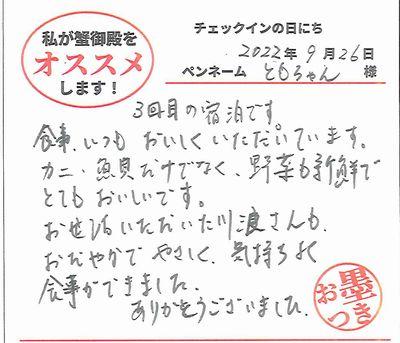 私が蟹御殿を
オススメ
します！
チェックインの日にち
2022年9月26日
ペンネーム ともちゃん 様
3回目の宿泊です
食事、いつも おいしくいただいています。
カニ、魚貝だけでなく、野菜も新鮮で
とてもおいしいです。
お世話いただいた川浪さんも、
おだやかで やさしく、気持ちよく
食事ができました。
ありがとうございました。
お墨つき